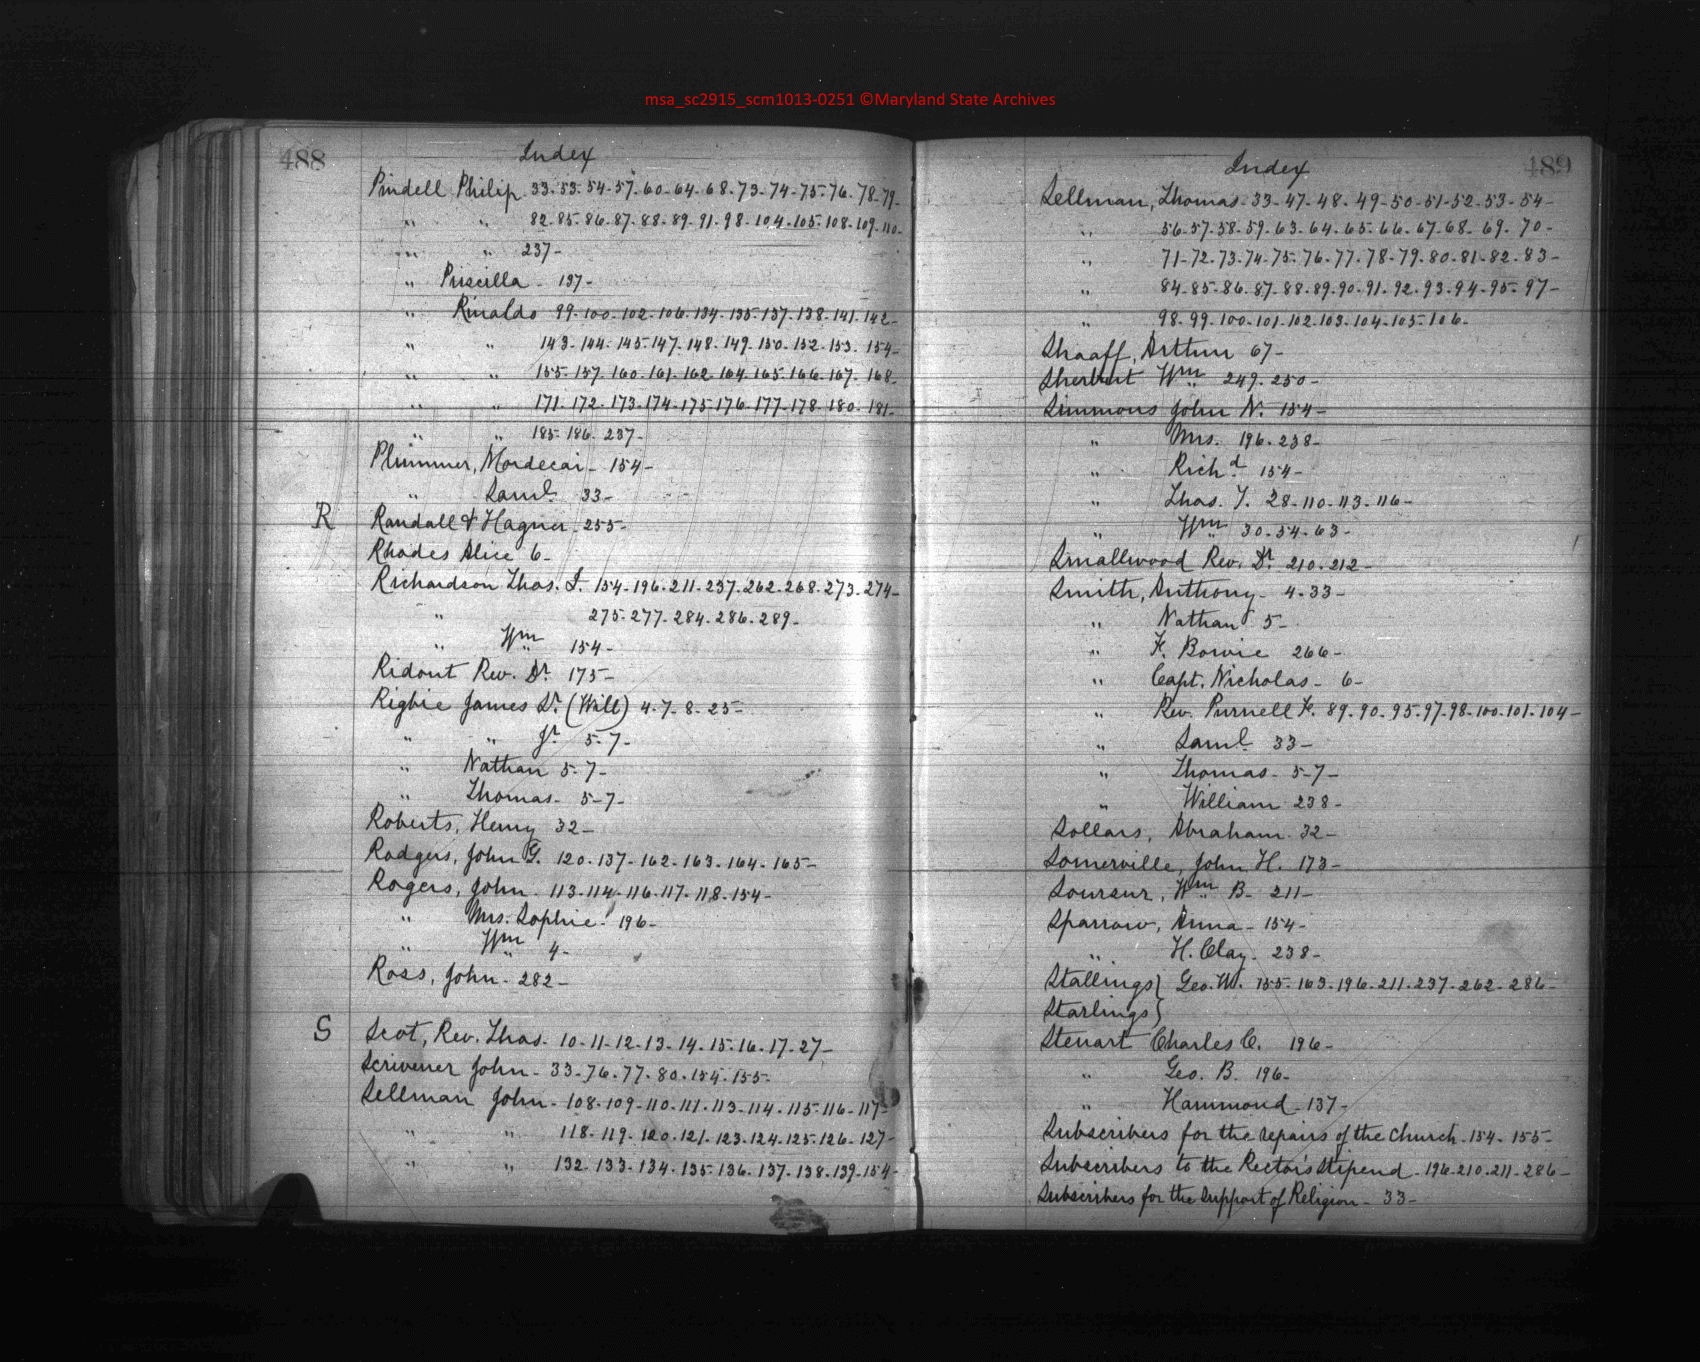 msa_sc2915_scm1013-0251 ©Maryland State Archives
488
Index
Pindell Philip 33-53-54-57-60-64-68-73-74-75-76-78-79-
" " 82-85-86-87-88-89-91-98-104-105-108-109-110-
" " 237-
" Priscilla - 137-
" Rinaldo 99-100-102-106-134-135-137-138-141-142-
" " 143-144-145-147-148-149-150-152-153-154-
" " 155-157-160-161-162-164-165-166-167-168-
" " 171-172-173-174-175-176-177-178-180-181-
" " 185-186-237-
Plummer, Mordecai - 154-
" Saml. 33-
R Randall & Hagner - 255-
Rhodes Alice 6-
Richardson Thos. I. 154-196-211-237-262-268-273-274-
" 275-277-284-286-289-
" Wm 154-
Ridout Rev. Dr. 175-
Rigbie James Sr. (Will) 4-7-8-25-
" " Jr. 5-7-
" Nathan 5-7-
" Thomas - 5-7-
Roberts, Henry 32-
Rodgers, John G. 120-137-162-163-164-165-
Rogers, John - 113-114-116-117-118-154-
" Mrs. Sophie - 196-
" Wm 4-
Ross, John - 282-
S Scot, Rev. Thos. 10-11-12-13-14-15-16-17-27-
Scrivener John - 33-76-77-80-154-155-
Sellman John - 108-109-110-111-113-114-115-116-117-
" " 118-119-120-121-123-124-125-126-127-
" " 132-133-134-135-136-137-138-139-154-
489
Index
Sellman, Thomas - 33-47-48-49-50-51-52-53-54-
" 56-57-58-59-63-64-65-66-67-68-69-70-
" 71-72-73-74-75-76-77-78-79-80-81-82-83-
" 84-85-86-87-88-89-90-91-92-93-94-95-97-
" 98-99-100-101-102-103-104-105-106-
Shaaff, Arthur 67-
Sherbert Wm 249-250-
Simmons John N. 154-
" Mrs. 196-238-
" Richd. 154-
" Thos. T. 28-110-113-116-
" Wm 30-54-63-
Smallwood Rev. Dr. 210-212-
Smith, Anthony - 4-33-
" Nathan 5-
" F. Bowie 266-
" Capt. Nicholas - 6-
" Rev. Purnell F. 89-90-95-97-98-100-101-104-
" Saml. 33-
" Thomas - 5-7-
" William 238-
Sollars, Abraham - 32-
Somerville, John H. 173-
Soursur, Wm B. - 211-
Sparrow, Anna - 154-
" H. Clay - 238-
Stallings} Geo. W. 155-163-196-211-237-262-286-
Starlings}
Steuart Charles C. 196-
" Geo. B. 196-
" Hammond - 137-
Subscribers for the repairs of the church - 154-155-
Subscribers to the Rector's stipend - 196-210-211-286-
Subscribers for the support of Religion - 33-